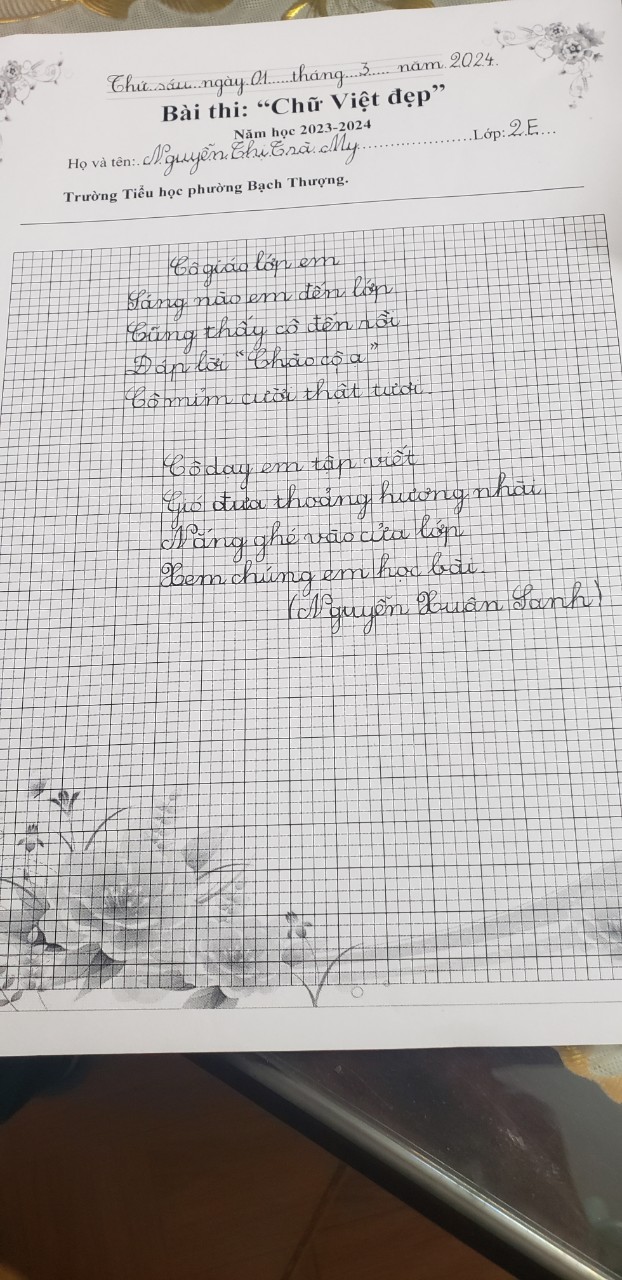 Thứ sáu ngày 01 tháng 3 năm 2024.
Bài thi: “Chữ Việt đẹp”
Năm học 2023-2024
Họ và tên: Nguyễn Thị Trà My Lớp: 2E
Trường Tiểu học phường Bạch Thượng.
Cô giáo lớp em
Sáng nào em đến lớp
Cũng thấy cô đến rồi
Đáp lời “Chào cô ạ”
Cô mỉm cười thật tươi.
Cô dạy em tập viết
Gió đưa thoảng hương nhài
Nắng ghé vào cửa lớp
Xem chúng em học bài.
(Nguyễn Xuân Sanh)